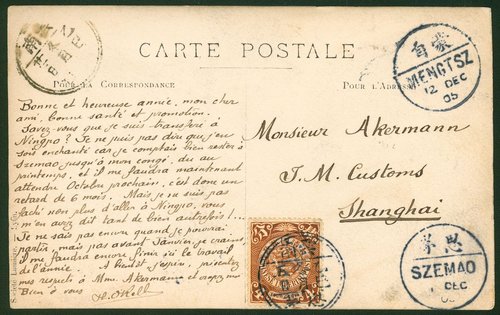 CARTE POSTALE
POUR LA CORRESPONDANCE
POUR L'ADRESSE
Bonne et heureuse année, mon cher
ami, bonne santé et promotion.
Savez-vous que je suis transféré à
Ningpo? Je ne puis pas dire que j'en
sois enchanté car je comptais bien rester à
Szemao jusqu'à mon congé, du au
printemps, et il me faudra maintenant
attendre Octobre prochain, c'est donc un
retard de 6 mois. Mais je ne suis pas
fâché non plus d'aller à Ningpo, vous
m'en avez dit tant de bien autrefois!...
Je ne sais pas encore quand je pourrai
partir, mais pas avant Janvier, je crains,
il me faudra encore finir ici le travail
de l'année. A bientôt j'espère, présentez
mes respects à Mme. Akermann et croyez
Bien à vous
Monsieur Akermann
I. M. Customs
Shanghai
蒙自
MENGTSZ
12 DEC
05
思茅
SZEMAO
DEC
05